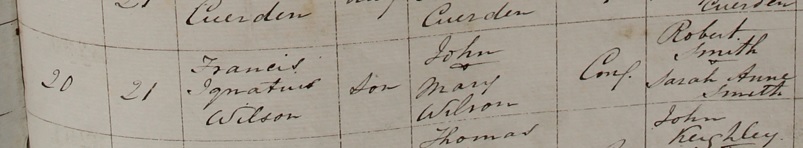 21
Cuerden
Cuerden
Cuerden
20
21
Francis
Ignatius
Wilson
Son
John
&
Mary
Wilson
Conf.
Robert
Smith
&
Sarah Anne
Smith
Thomas
John
Keighley